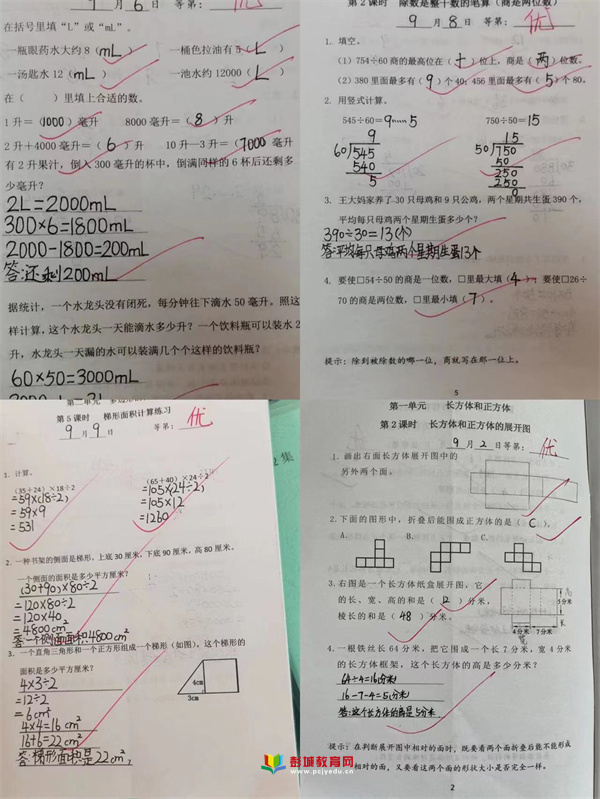 9月6日 等第: 优
在括号里填“L”或“mL”。
一瓶眼药水大约8（mL） 一桶色拉油有5（L）
一汤匙水12（mL） 一池水约12000（L）
在（ ）里填上合适的数。
1升=（1000）毫升 8000毫升=（8）升
2升+4000毫升=（6）升 10升-3升=（7000）毫升
有2升果汁，倒入300毫升的杯中，倒满同样的6杯后还剩多
少毫升？
2L=2000mL
300×6=1800mL
2000-1800=200mL
答:还剩200mL
据统计，一个水龙头没有闭死，每分钟往下滴水50毫升。照这
样计算，这个水龙头一天能滴水多少升？一个饮料瓶可以装水2
升，水龙头一天漏的水可以装满几个个这样的饮料瓶？
60×50=3000mL
第2课时 除数是整十数的笔算（商是两位数）
9月8日 等第: 优
1. 填空。
（1）754÷60商的最高位在（十）位上，商是（两）位数。
（2）380里面最多有（9）个40；456里面最多有（5）个80。
2. 用竖式计算。
545÷60=9……5 750÷50=15
9 15
60 545 50 750
540 50
5 250
250
0
3. 王大妈家养了30只母鸡和9只公鸡，两个星期共生蛋390个，
平均每只母鸡两个星期生蛋多少个？
390÷30=13(个)
答:平均每只母鸡两个星期生蛋13个
4. 要使□54÷50的商是一位数，□里最大填（4）；要使□26÷
70的商是两位数，□里最小填（7）。
提示：除到被除数的哪一位，商就写在那一位上。
5
第5课时 梯形面积计算练习
9月9日 等第: 优
1. 计算。
（35+24）×18÷2 （65+40）×24÷2
=59×(18÷2) =105×(24÷2)
=59×9 =105×12
=531 =1260
2. 一种书架的侧面是梯形，上底30厘米，下底90厘米，高80厘米。
一个侧面的面积是多少平方厘米？
(30+90)×80÷2
=120×80÷2
=120×40
=4800cm²
答:一个侧面面积4800cm²
3. 一个直角三角形和一个正方形组成一个梯形（如图），这个梯形的
面积是多少平方厘米？
4cm
3cm
4×3÷2
=12÷2
=6cm²
4×4=16cm²
16+6=22cm²
答:梯形面积是22cm²。
第一单元 长方体和正方体
第2课时 长方体和正方体的展开图
9月2日等第: 优
1. 画出右面长方体展开图中的
另外两个面。
2. 下面的图形中，折叠后能围成正方体的是（C）。
A. B. C.
3. 右图是一个长方体纸盒展开图，它
的长、宽、高的和是（12）分米，
棱长的和是（48）分米。
高
5分米
长
4分米 7分米
宽
4. 一根铁丝长64分米，把它围成一个长7分米，宽4分米
的长方体框架，这个长方体的高是多少分米？
64÷4=16分米
16-7-4=5分米
答:这个长方体的高是5分米
提示：在判断展开图中相对的面时，既要看两个面折叠后能不能形成
相对的面，又要看这两个面的形状大小是否完全一样。
2
彭城教育网
www.pcjyedu.cn